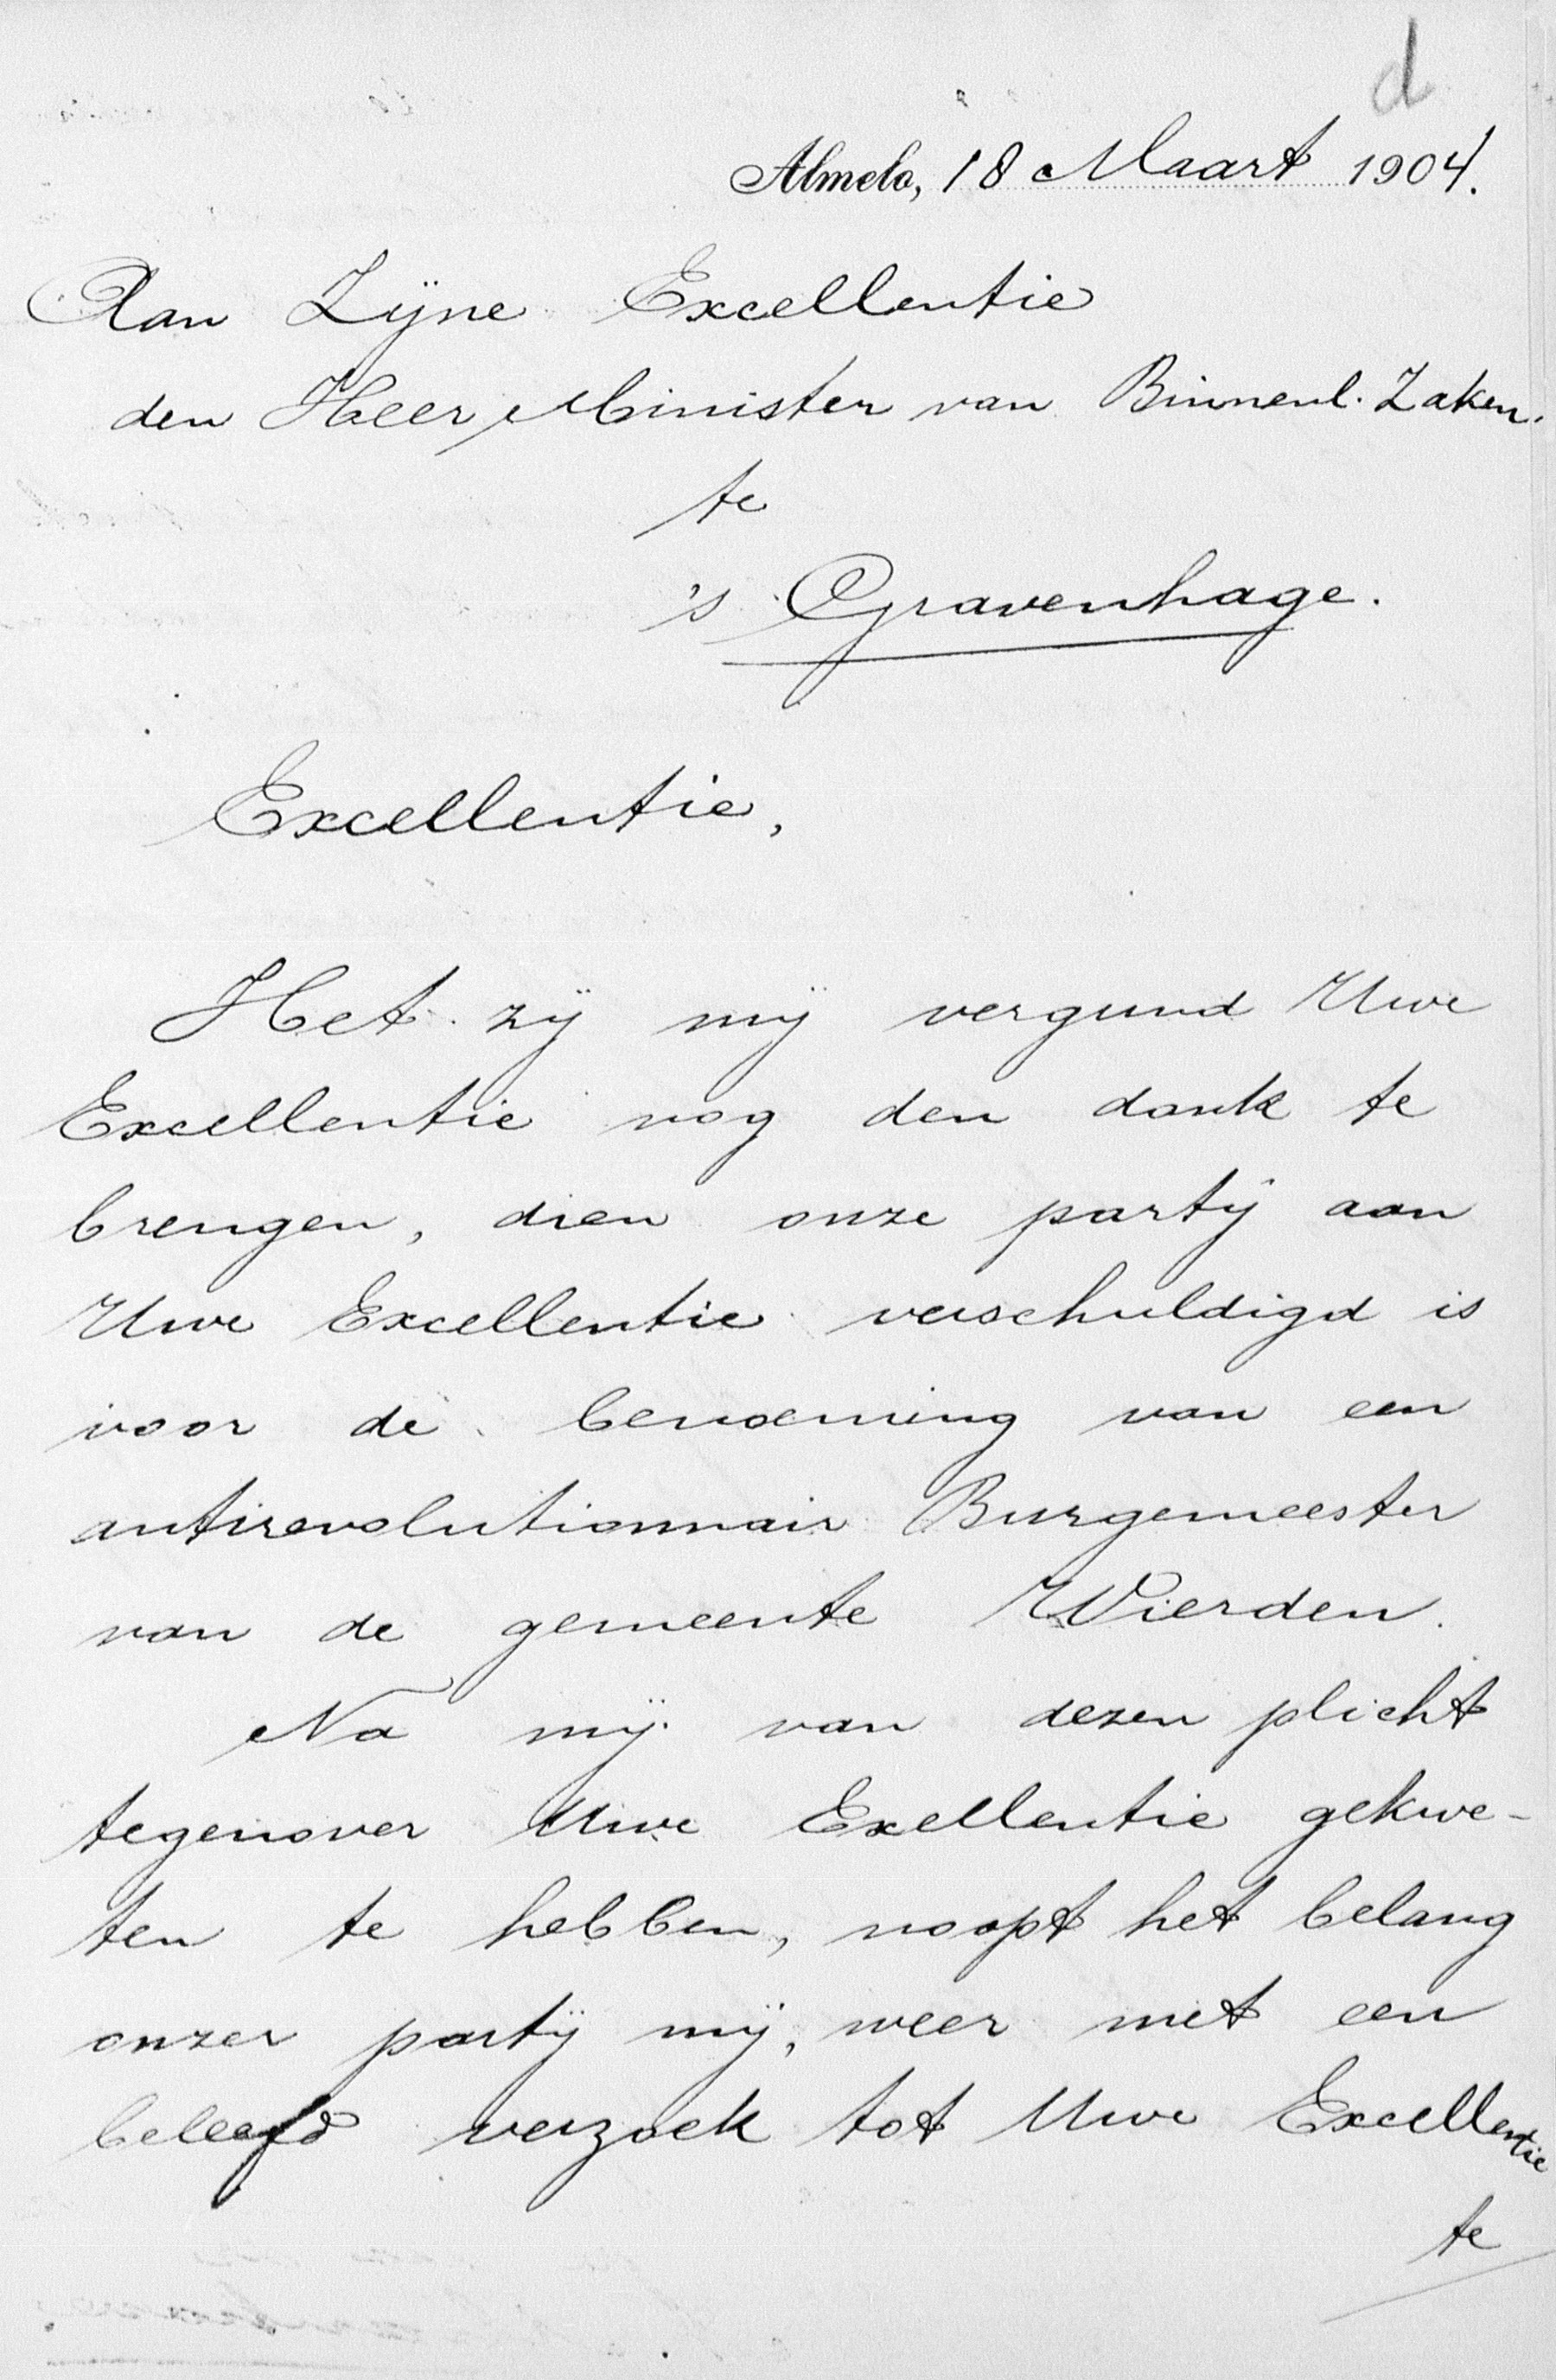 d
Almelo, 18 Maart 1904.
Aan Zijne Excellentie
den Heer Minister van Binnenl. Zaken.
te
's Gravenhage.
Excellentie,
Het zij mij vergund Uwe
Excellentie nog den dank te
brengen, dien onze partij aan
Uwe Excellentie verschuldigd is
voor de benoeming van een
antirevolutionnair Burgemeester
van de gemeente Wierden.
Na mij van dezen plicht
tegenover Uwe Exellentie gekwe-
ten te hebben, noopt het belang
onzer partij mij, weer met een
beleefd verzoek tot Uwe Excellentie
te